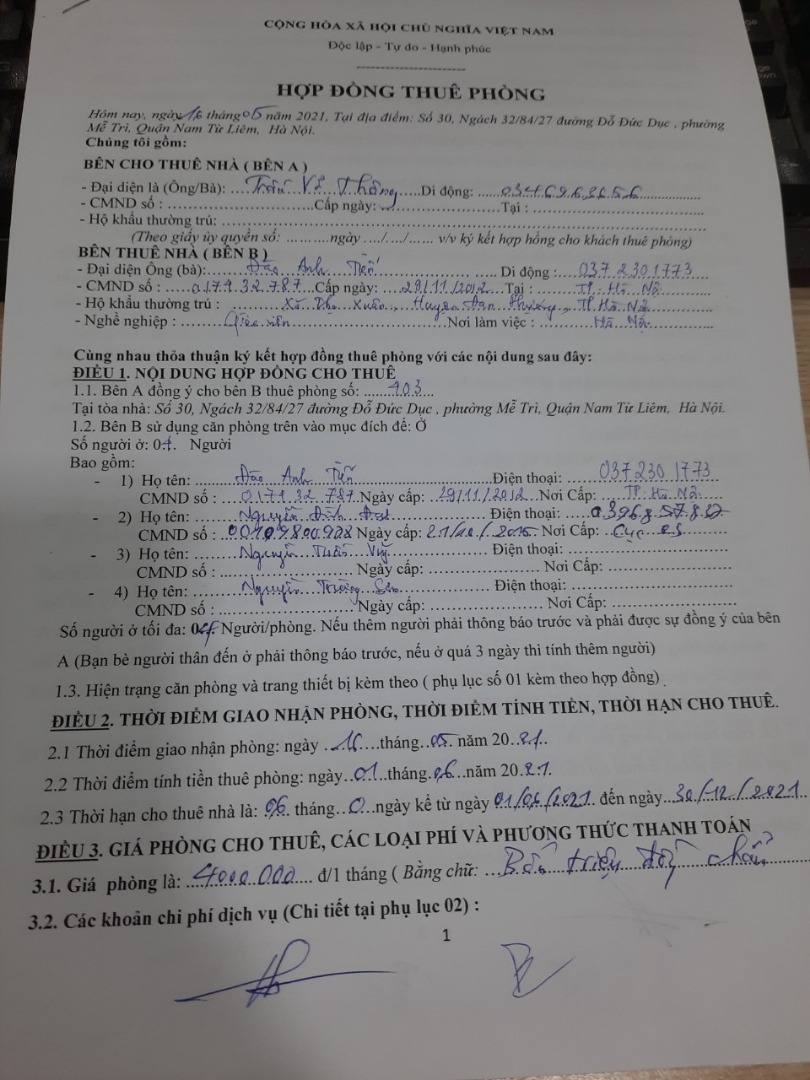 CỘNG HÒA XÃ HỘI CHỦ NGHĨA VIỆT NAM
Độc lập - Tự do - Hạnh phúc
HỢP ĐỒNG THUÊ PHÒNG
Hôm nay, ngày 16 tháng 05 năm 2021, Tại địa điểm: Số 30, Ngách 32/84/27 đường Đỗ Đức Dục , phường
Mễ Trì, Quận Nam Từ Liêm, Hà Nội.
Chúng tôi gồm:
BÊN CHO THUÊ NHÀ ( BÊN A )
- Đại diện là (Ông/Bà): Trần Thông Di động: 0346963656
- CMND số : Cấp ngày: Tại :
- Hộ khẩu thường trú:
(Theo giấy ủy quyền số: ngày / / v/v ký kết hợp hồng cho khách thuê phòng)
BÊN THUÊ NHÀ ( BÊN B )
- Đại diện Ông (bà): Đào Anh Tiến Di động : 037 2301773
- CMND số : 017132787 Cấp ngày: 29/11/2012 Tại : TP. Hà Nội
- Hộ khẩu thường trú : Xã Thọ Xuân, Huyện Đan Phượng, TP Hà Nội
- Nghề nghiệp : Giáo viên Nơi làm việc : Hà Nội
Cùng nhau thỏa thuận ký kết hợp đồng thuê phòng với các nội dung sau đây:
ĐIỀU 1. NỘI DUNG HỢP ĐỒNG CHO THUÊ
1.1. Bên A đồng ý cho bên B thuê phòng số: 403
Tại tòa nhà: Số 30, Ngách 32/84/27 đường Đỗ Đức Dục , phường Mễ Trì, Quận Nam Từ Liêm, Hà Nội.
1.2. Bên B sử dụng căn phòng trên vào mục đích để: Ở
Số người ở: 04. Người
Bao gồm:
- 1) Họ tên: Đào Anh Tiến Điện thoại: 037 230 1773
CMND số : 017132787 Ngày cấp: 29/11/2012 Nơi Cấp: TP. Hà Nội
- 2) Họ tên: Nguyễn Đình Đạt Điện thoại:
CMND số : Ngày cấp: Nơi Cấp: Cục CS
- 3) Họ tên: Nguyễn Điện thoại:
CMND số : Ngày cấp: Nơi Cấp:
- 4) Họ tên: Nguyễn Trường Sơn Điện thoại:
CMND số : Ngày cấp: Nơi Cấp:
Số người ở tối đa: 04 Người/phòng. Nếu thêm người phải thông báo trước và phải được sự đồng ý của bên
A (Bạn bè người thân đến ở phải thông báo trước, nếu ở quá 3 ngày thì tính thêm người)
1.3. Hiện trạng căn phòng và trang thiết bị kèm theo ( phụ lục số 01 kèm theo hợp đồng)
ĐIỀU 2. THỜI ĐIỂM GIAO NHẬN PHÒNG, THỜI ĐIỂM TÍNH TIỀN, THỜI HẠN CHO THUÊ.
2.1 Thời điểm giao nhận phòng: ngày 16 tháng 05 năm 2021.
2.2 Thời điểm tính tiền thuê phòng: ngày 01 tháng 06 năm 2021.
2.3 Thời hạn cho thuê nhà là: 06 tháng 0 ngày kể từ ngày 01/06/2021 đến ngày 30/12/2021
ĐIỀU 3. GIÁ PHÒNG CHO THUÊ, CÁC LOẠI PHÍ VÀ PHƯƠNG THỨC THANH TOÁN
3.1. Giá phòng là: 4000.000 đ/1 tháng ( Bằng chữ: Bốn triệu đồng chẵn
3.2. Các khoản chi phí dịch vụ (Chi tiết tại phụ lục 02) :
1